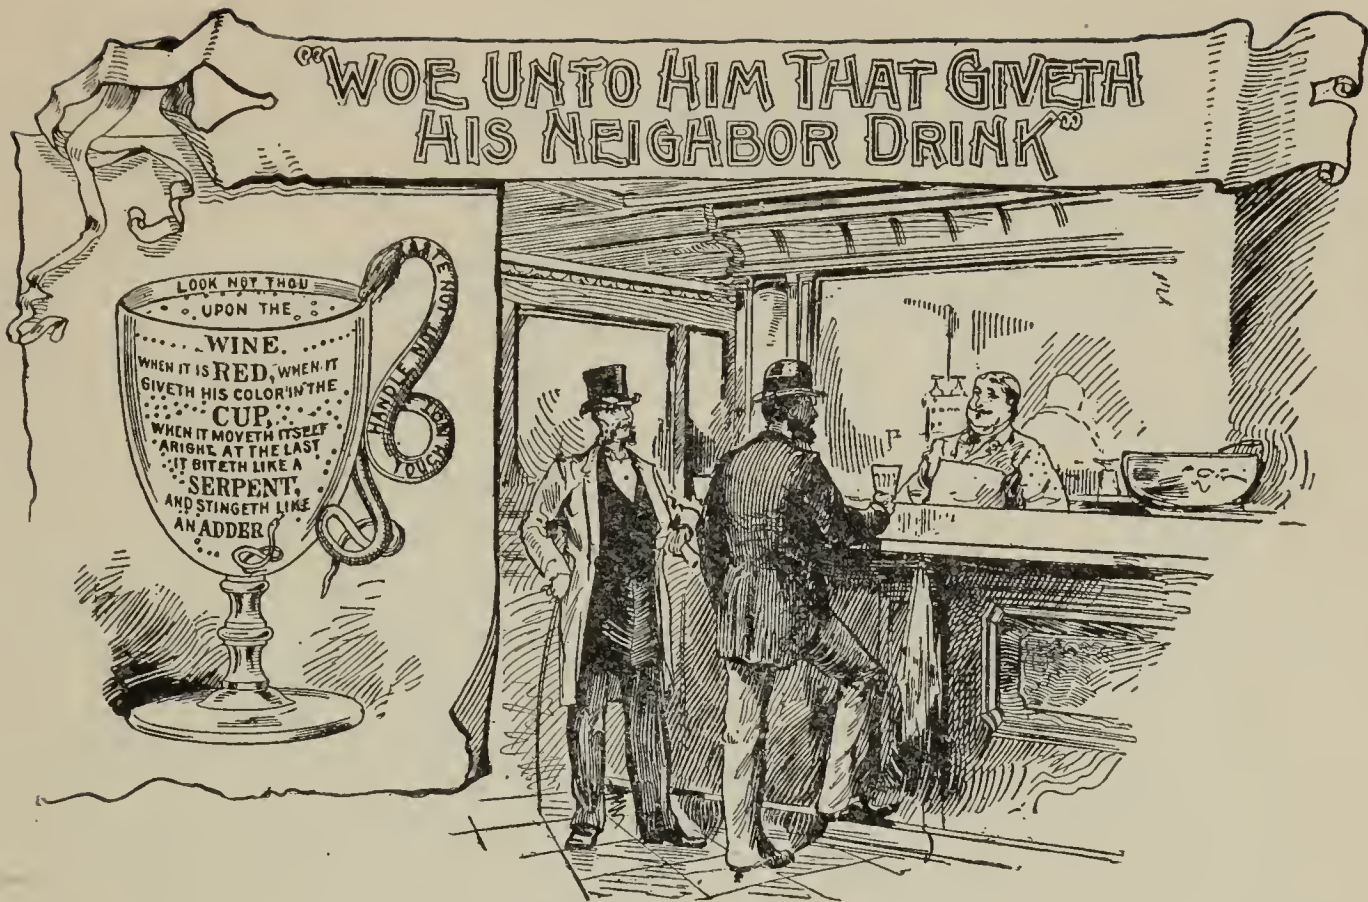 "WOE UNTO HIM THAT GIVETH
HIS NEIGHBOR DRINK"
LOOK NOT THOU
UPON THE
WINE.
WHEN IT IS RED, WHEN IT
GIVETH HIS COLOR IN THE
CUP,
WHEN IT MOVETH ITSELF
ARIGHT, AT THE LAST
IT BITETH LIKE A
SERPENT,
AND STINGETH LIKE
AN ADDER
TASTE NOT
HANDLE NOT
TOUCH NOT